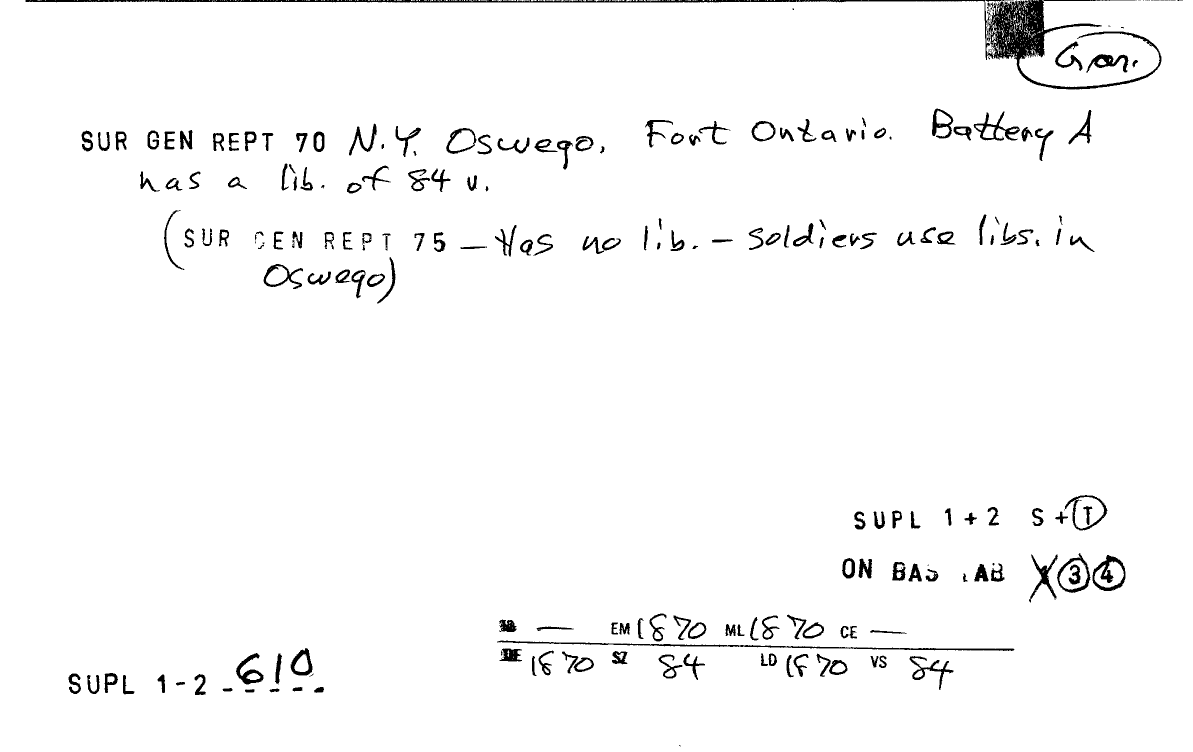 Gar.
SUR GEN REPT 70 N.Y. Oswego, Fort Ontario. Battery A
has a lib. of 84 v.
(SUR GEN REPT 75 – Has no lib. – soldiers use libs. in
Oswego)
SUPL 1+2 S+T
ON BAS TAB X 3 4
— EM 1870 ML 1870 CE —
DE 1870 SZ 84 LD 1870 VS 84
SUPL 1-2 610